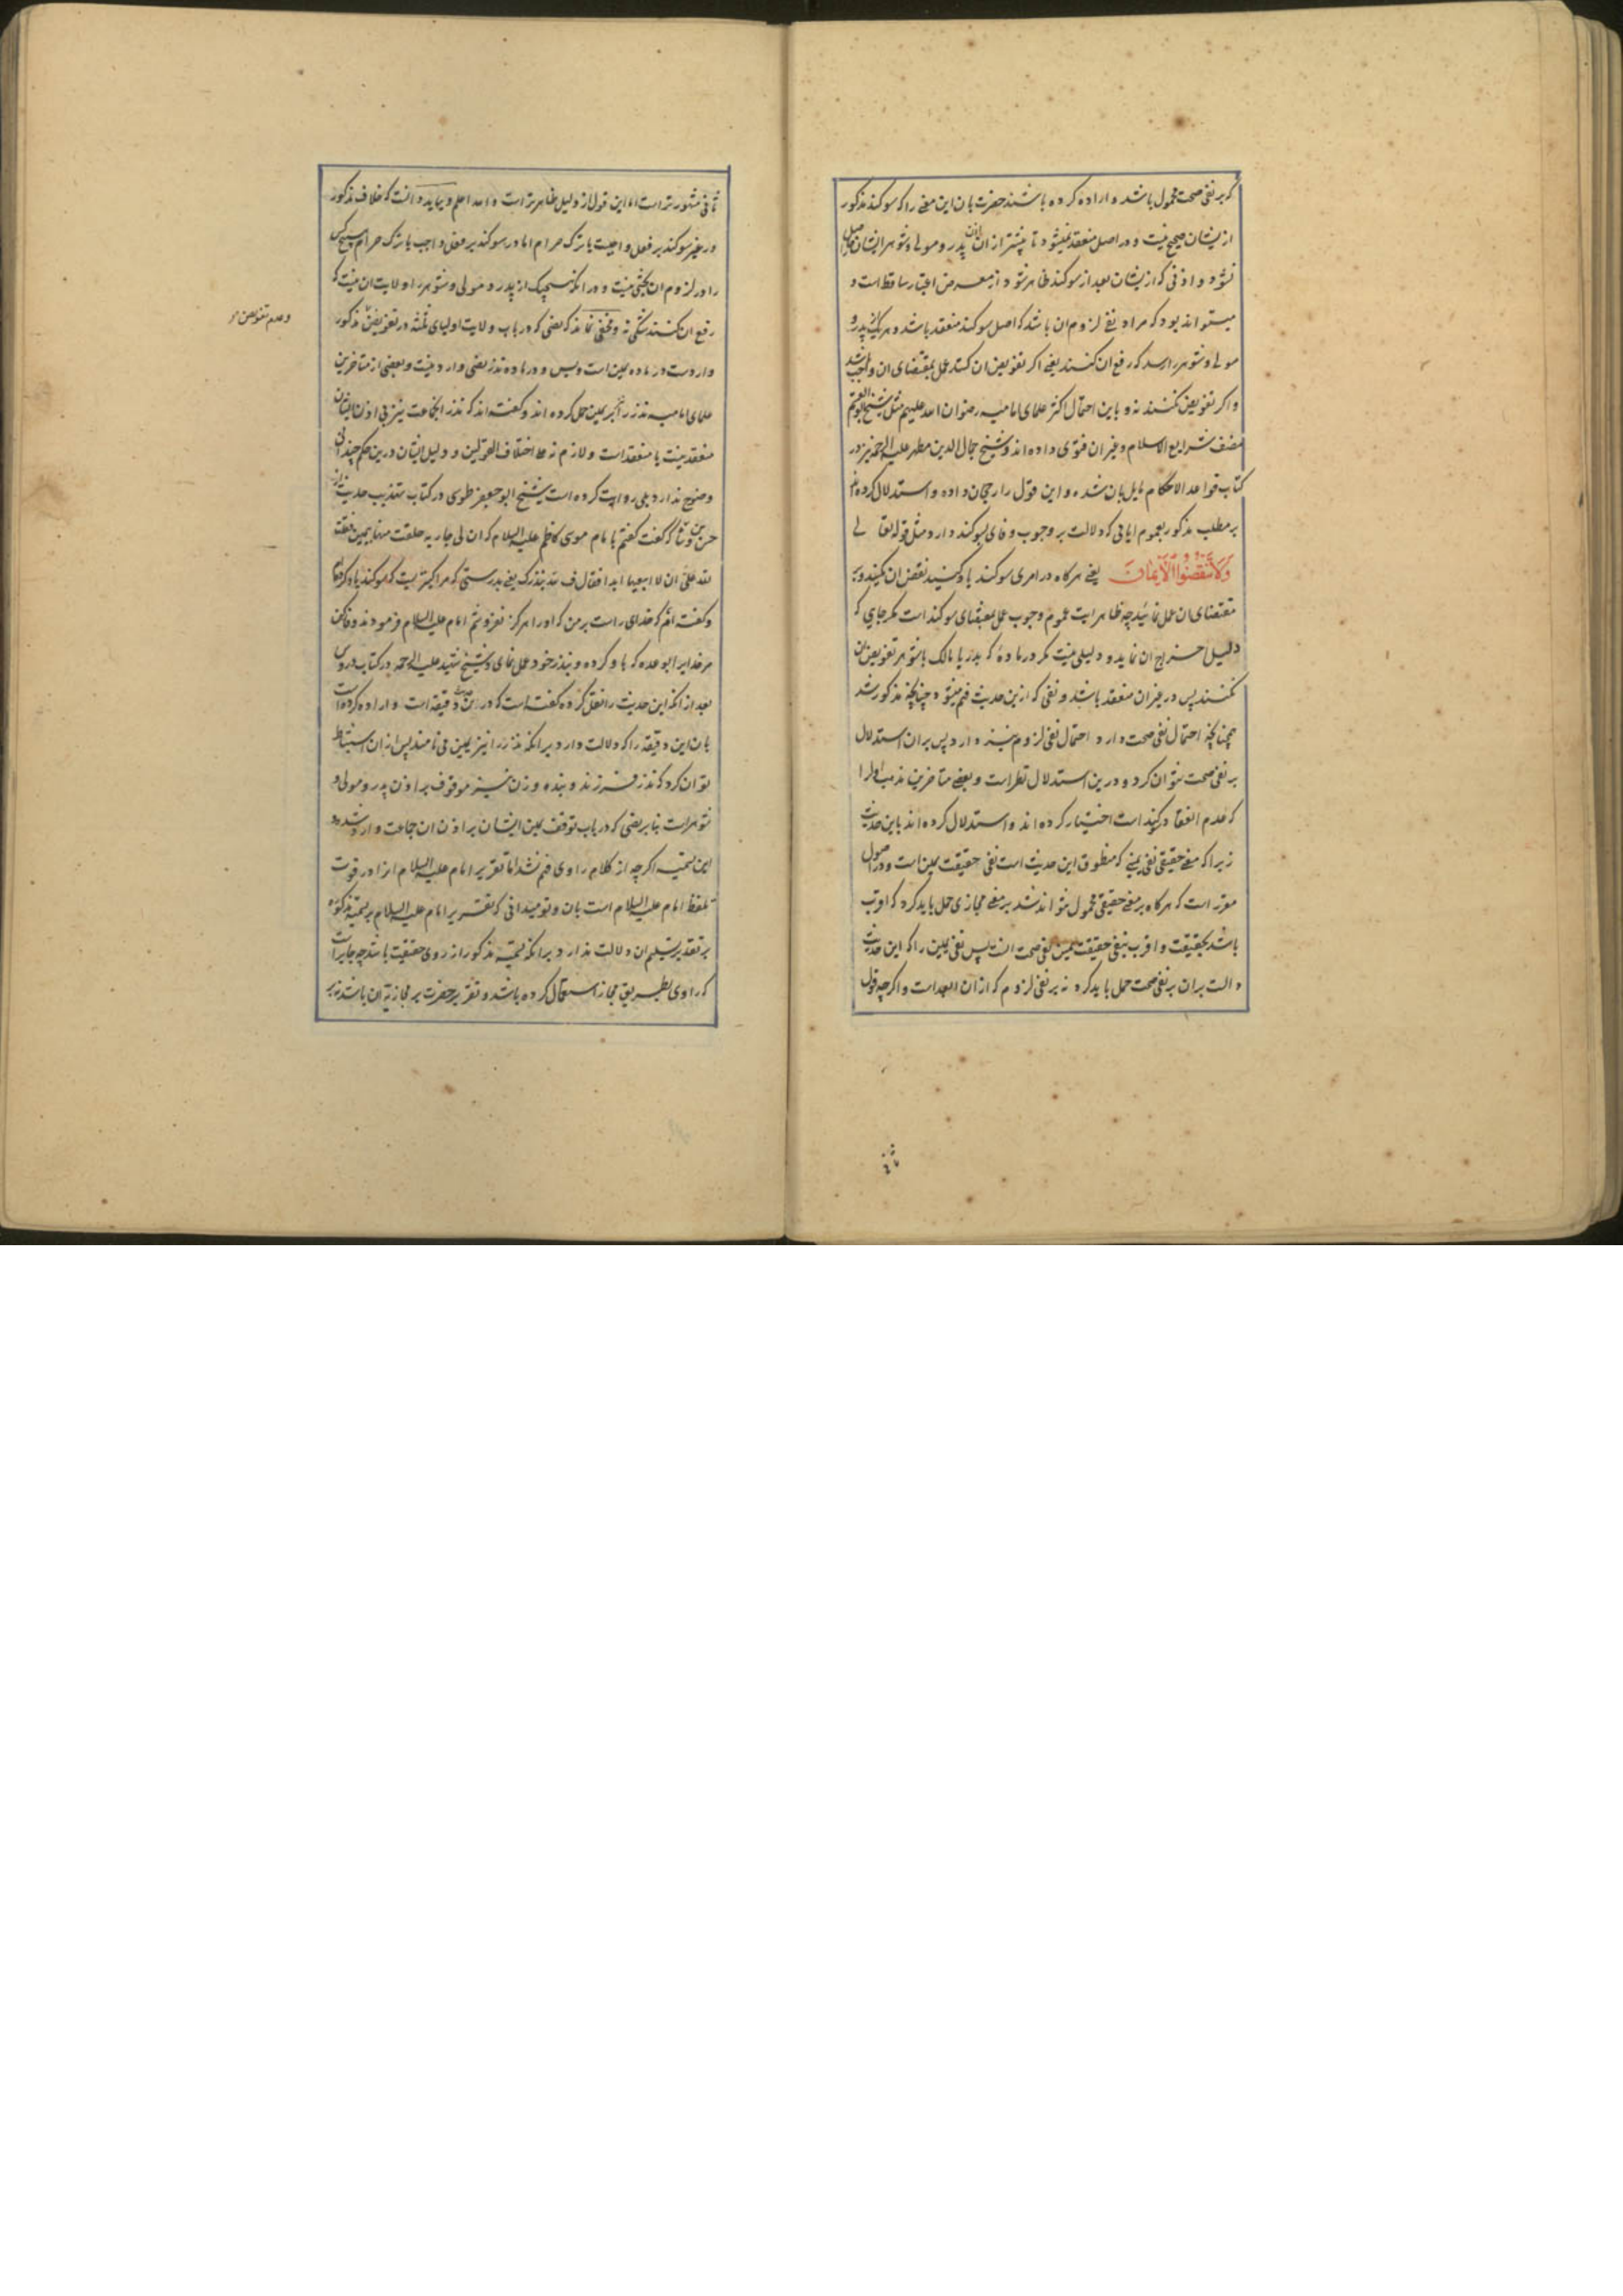 که بر نفی صحت محمول باشد و اراده کرده باشند حضرت بان این معنی را که سوکند مذکور
از ایشان صحیح نیست و در اصل منعقد نمیشود تا پیشتر از ان اذن پدر و مولی و شوهر ایشان حاصل
نشود و اذنی که از ایشان بعد از سوکند ظاهر شود از معرض اعتبار ساقط است و
میتواند بود که مراد نفی لزوم ان باشد که اصل سوکند منعقد باشد و هر یک از پدر و
مولی و شوهر را رسد که رفع ان کنند یعنی اکر تفویض ان کنند عمل بمقتضای ان واجب باشد
و اکر تفویض نکنند نه و باین احتمال اکثر علمای امامیه رضوان الله علیهم مثل شیخ ابوالقاسم
مصنف شرایع الاسلام و غیر ان فتوی داده‌اند و شیخ جمال الدین مطهر علیه الرحمه نیز در
کتاب قواعد الاحکام مایل بان شده و این قول را رجحان داده و استدلال کرده‌اند
بر مطلب مذکور بعموم ایاتی که دلالت بر وجوب وفای بسوکند دارد مثل قوله تعالی
وَلَا تَنْقُضُوا الْأَیْمَانَ یعنی هرکاه در امری سوکند یاد کنید نقض ان نکنید و به
مقتضای ان عمل نمائید چه ظاهر ایت عموم وجوب عمل بمقتضای سوکند است مکر جایی که
دلیل اخراج ان نماید و دلیلی نیست مکر در ماده که پدر یا مالک یا شوهر تفویض ان
نکنند پس در غیر ان منعقد باشد و نفی که ازین حدیث فهم میشود چنانچه مذکور شد
همچنانچه احتمال نفی صحت دارد احتمال نفی لزوم نیز دارد پس بران استدلال
بر نفی صحت نتوان کرد و درین استدلال نظر است و بعضی متاخرین مذهب اول را
که عدم انعقاد سوکند است اختیار کرده‌اند و استدلال کرده‌اند باین حدیث
زیرا که معنی حقیقی نفی یمینی که منطوق این حدیث است نفی حقیقت یمین است و در اصول
مقرر است که هرکاه بر معنی حقیقی محمول نتواند شد بر معنی مجازی حمل باید کرد که اقرب
باشد بحقیقت و اقرب بنفی حقیقت یمین نفی صحت است پس نفی یمین را که این حدیث
دالست بران بر نفی صحت حمل باید کرد نه بر نفی لزوم که از ان ابعد است و اکرچه قول
ثانی مشهورتر است اما این قول از دلیل ظاهرتر است والله اعلم و بباید دانست که خلاف مذکور
در غیر سوکند بر فعل واجبست یا ترک حرام اما در سوکند بر فعل واجب یا ترک حرام هیچکس
را در لزوم ان بحثی نیست و در انکه هیچیک از پدر و مولی و شوهر را ولایت ان نیست که
رفع ان کنند شکی نه و مخفی نماند که نصی که در باب ولایت اولیای ثلثه در تفویض مذکور
وعدم تفویض
واردست در ماده یمین است و بس و در ماده نذر نصی وارد نیست و بعضی از متاخرین
علمای امامیه نذر را بر یمین حمل کرده‌اند و کفته‌اند که نذر انجماعت نیز بی اذن ایشان
منعقد نیست یا منعقد است و لازم نه علی اختلاف القولین و دلیل ایشان درین حکم چندانی
وضوح ندارد بلی روایت کرده است شیخ ابو جعفر طوسی در کتاب تهذیب حدیث از
حسن بن وشا که کفت کفتم بامام موسی کاظم علیه السلام که ان لی جاریه حلفت منها بیمین فقلت
لله علی ان لا ابیعها ابدا فقال ف لله بنذرک یعنی بدرستی که مرا کنیزیست که سوکند یاد کرده‌ام
و کفته‌ام که خدای راست بر من که او را هرکز نفروشم امام علیه السلام فرمودند وفا کن
مر خدایرا بوعده که باو کرده و بنذر خود عمل نمای و شیخ شهید علیه الرحمه در کتاب دروس
بعد از انکه این حدیث را نقل کرده کفته است که درین حدیث دقیقه است و اراده کرده است
بان این دقیقه را که دلالت دارد برانکه نذر را نیز یمین می نامند پس از ان استنباط
توان کرد که نذر فرزند و بنده و زن نیز موقوف بر اذن پدر و مولی و
شوهر است بنا بر نصی که در باب توقف یمین ایشان بر اذن ان جماعت وارد شده و
این تسمیه اکرچه از کلام راوی فهم شد اما تقریر امام علیه السلام انرا در قوت
تلفظ امام علیه السلام است بان و تو میدانی که تقریر امام علیه السلام بر تسمیه مذکوره
بر تقدیر تسلیم ان دلالت ندارد برانکه تسمیه مذکور از روی حقیقت باشد چه جایز است
که راوی بطریق مجاز استعمال کرده باشد و تقریر حضرت بر مجازیه ان باشد نه بر